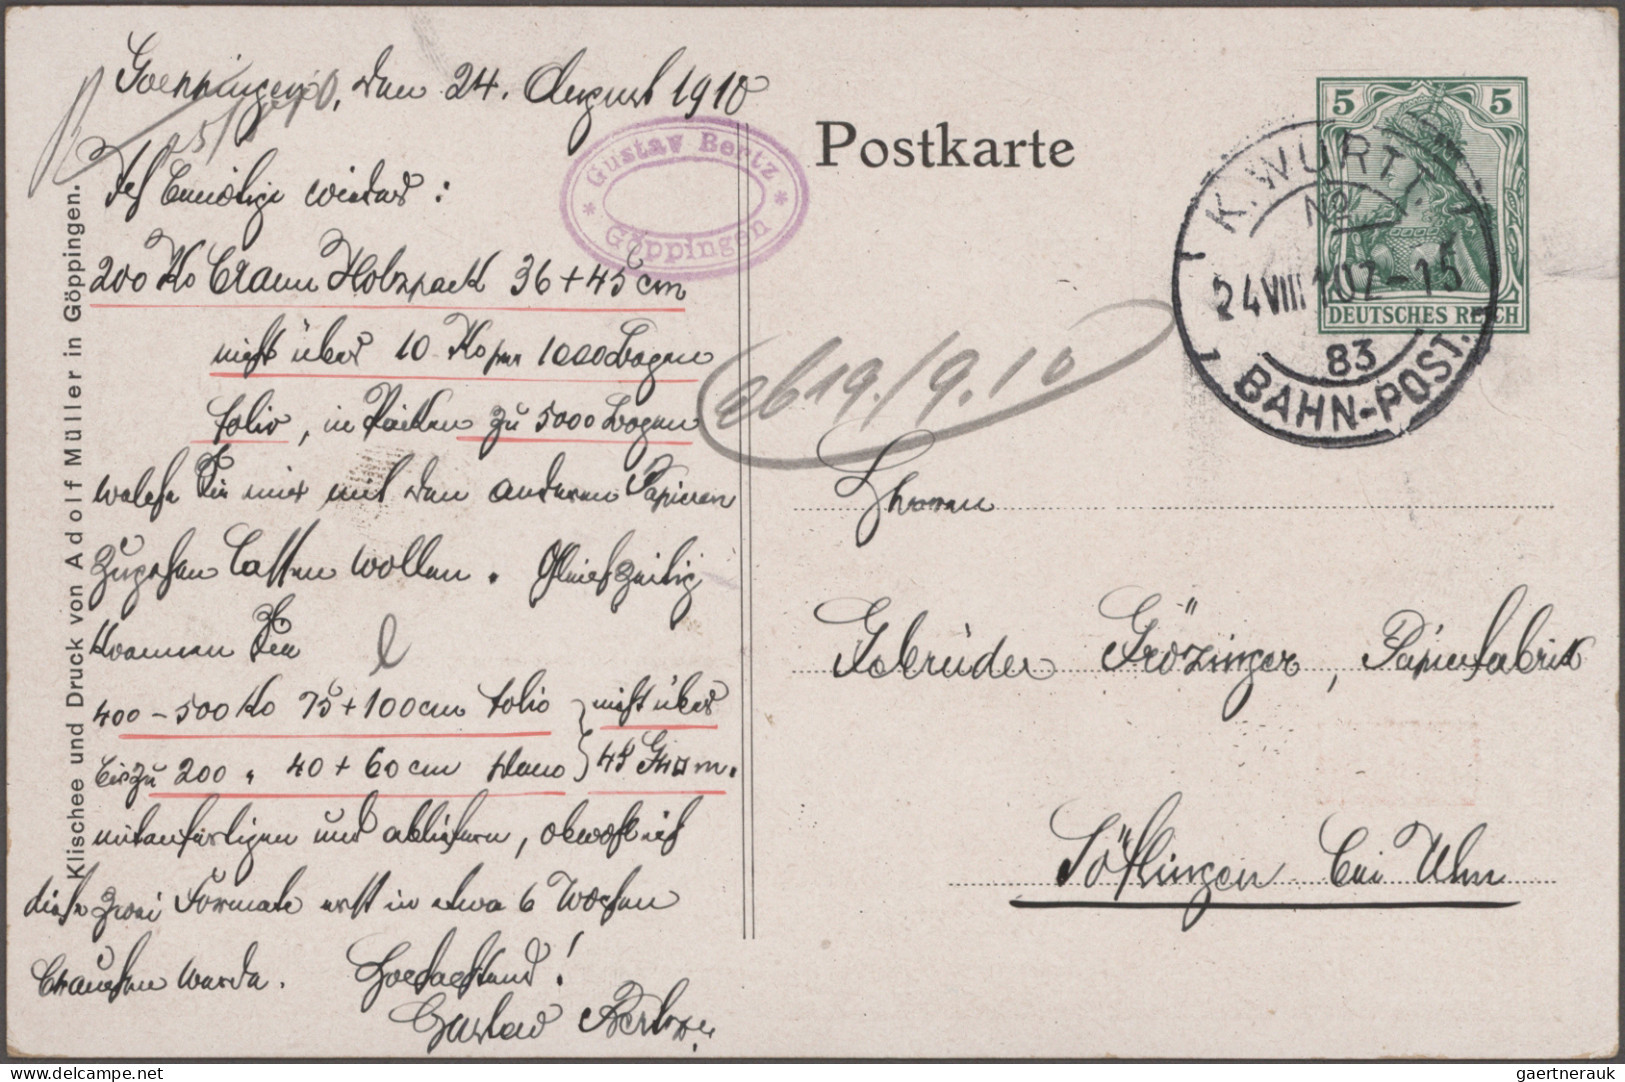 Goeppingen, den 24. August 1910
Ich benötige wieder:
200 Ko braun Holzpack 36 + 45 cm
nicht über 10 Ko per 1000 Bogen
folio, in Packen zu 5000 Bogen
welche Sie mir mit den anderen Papieren
zugehen lassen wollen. Gleichzeitig
koennen Sie
400 – 500 Ko 75 + 100 cm folio } nicht über
bis zu 200 " 40 + 60 cm } 45 Gr. □ m.
mitanfertigen und abliefern, obwohl ich
diese zwei Formate erst in etwa 6 Wochen
brauchen werde. Hochachtend!
Gustav Bertz
Klischee und Druck von Adolf Müller in Göppingen.
* Gustav Bertz *
Göppingen
Postkarte
5 5
DEUTSCHES REICH
K. WÜRTT.
No
24 VIII 10 Z – 15
83
BAHN-POST.
ab 19./9.10
Herren
Gebrüder Grözinger, Papierfabrik
Söflingen bei Ulm
gaertnerauk